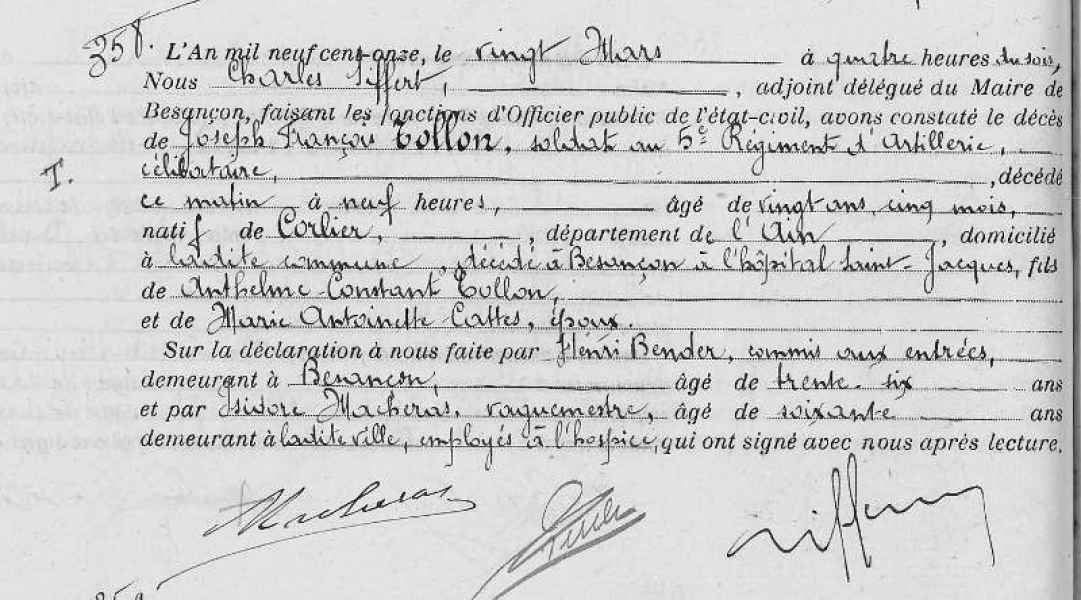 358. L'An mil neuf cent onze, le vingt Mars à quatre heures du soir,
Nous Charles Siffert, , adjoint délégué du Maire de
Besançon, faisant les fonctions d'Officier public de l'état-civil, avons constaté le décès
de Joseph François Tollon, soldat au 5e Régiment d'Artillerie,
T. célibataire, , décédé
ce matin à neuf heures, âgé de vingt ans, cinq mois,
natif de Corlier, , département de l'Ain , domicilié
à ladite commune, décédé à Besançon à l'hôpital Saint-Jacques, fils
de Anthelme Constant Tollon,
et de Marie Antoinette Cattes, époux.
Sur la déclaration à nous faite par Henri Bender, commis aux entrées,
demeurant à Besançon, âgé de trente-six ans
et par Isidore Macheras, vaguemestre, âgé de soixante ans
demeurant à ladite ville, employés à l'hospice, qui ont signé avec nous après lecture.
Macheras